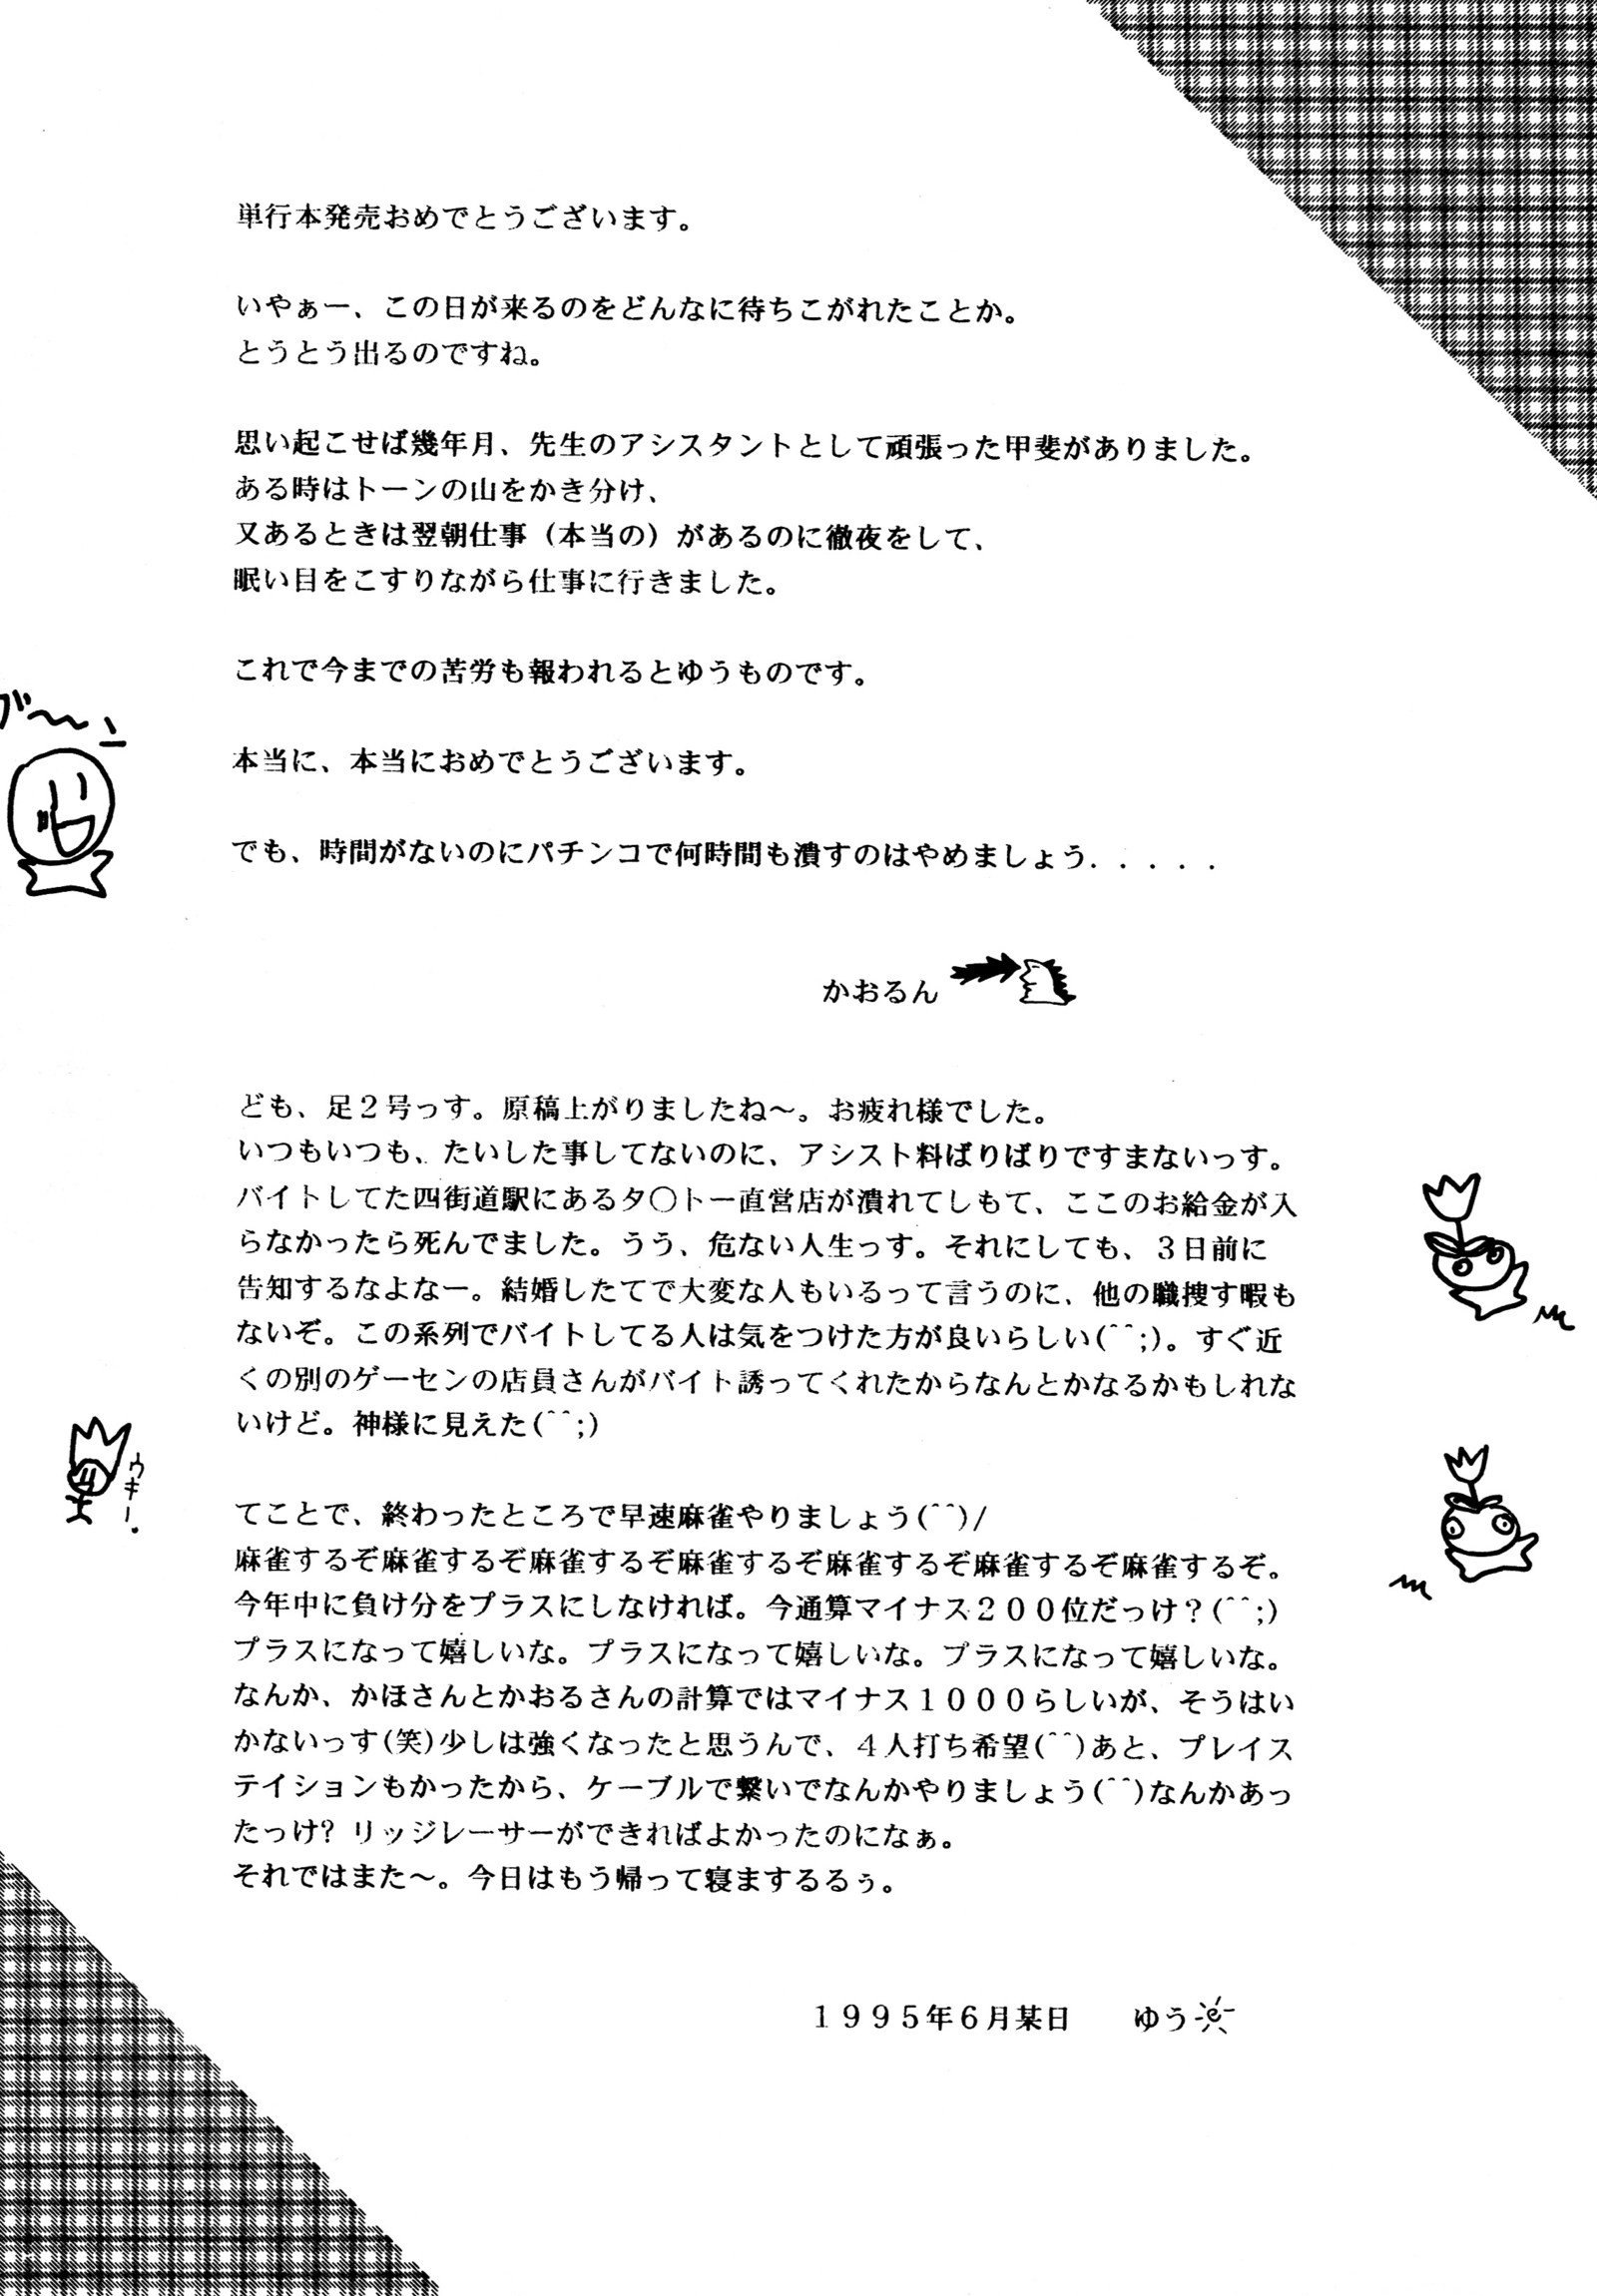 単行本発売おめでとうございます。
いやぁー、この日が来るのをどんなに待ちこがれたことか。
とうとう出るのですね。
思い起こせば幾年月、先生のアシスタントとして頑張った甲斐がありました。
ある時はトーンの山をかき分け、
又あるときは翌朝仕事（本当の）があるのに徹夜をして、
眠い目をこすりながら仕事に行きました。
これで今までの苦労も報われるとゆうものです。
ブ〜ン
本当に、本当におめでとうございます。
でも、時間がないのにパチンコで何時間も潰すのはやめましょう．．．．．
かおるん
ども、足２号っす。原稿上がりましたね〜。お疲れ様でした。
いつもいつも、たいした事してないのに、アシスト料ばりばりですまないっす。
バイトしてた四街道駅にあるタ〇トー直営店が潰れてしもて、ここのお給金が入
らなかったら死んでました。うう、危ない人生っす。それにしても、３日前に
告知するなよなー。結婚したてで大変な人もいるって言うのに、他の職捜す暇も
ないぞ。この系列でバイトしてる人は気をつけた方が良いらしい(^^;)。すぐ近
くの別のゲーセンの店員さんがバイト誘ってくれたからなんとかなるかもしれな
いけど。神様に見えた(^^;)
ウキー。
てことで、終わったところで早速麻雀やりましょう(^^)/
麻雀するぞ麻雀するぞ麻雀するぞ麻雀するぞ麻雀するぞ麻雀するぞ麻雀するぞ。
今年中に負け分をプラスにしなければ。今通算マイナス２００位だっけ？(^^;)
プラスになって嬉しいな。プラスになって嬉しいな。プラスになって嬉しいな。
なんか、かほさんとかおるさんの計算ではマイナス１０００らしいが、そうはい
かないっす(笑)少しは強くなったと思うんで、４人打ち希望(^^)あと、プレイス
テイションもかったから、ケーブルで繋いでなんかやりましょう(^^)なんかあっ
たっけ? リッジレーサーができればよかったのになぁ。
それではまた〜。今日はもう帰って寝まするるぅ。
１９９５年６月某日　　ゆう